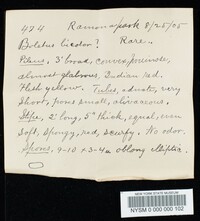 474 Ramona park 8/25/05
Boletus bicolor? Rare.
Pileus, 3' broad, convex, pruinate,
almost glabrous, Indian red.
Flesh yellow. Tubes, adnate, very
short, pores small, olivaceous.
Stipe, 2' long, 5" thick, equal, even
soft, spongy, red, scurfy. No odor.
Spores, 9-10 x 3-4u oblong elliptic.
NEW YORK STATE MUSEUM
NYSM 0 000 000 102